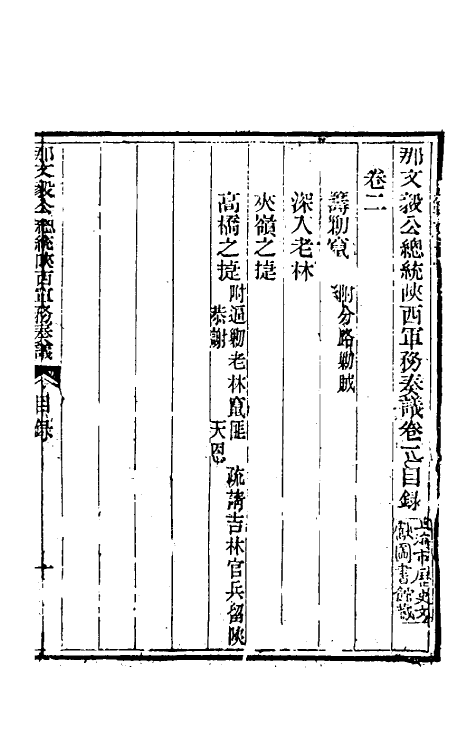 那文毅公總統陝西軍務奏議卷二目錄
上海市歷史文
獻圖書館藏
卷二
籌剿竄 附分路剿賊
深入老林
夾嶺之捷
高橋之捷 附逼剿老林竄匪 疏請吉林官兵留陝
恭謝 天恩
那文毅公總統陝西軍務奏議 目錄